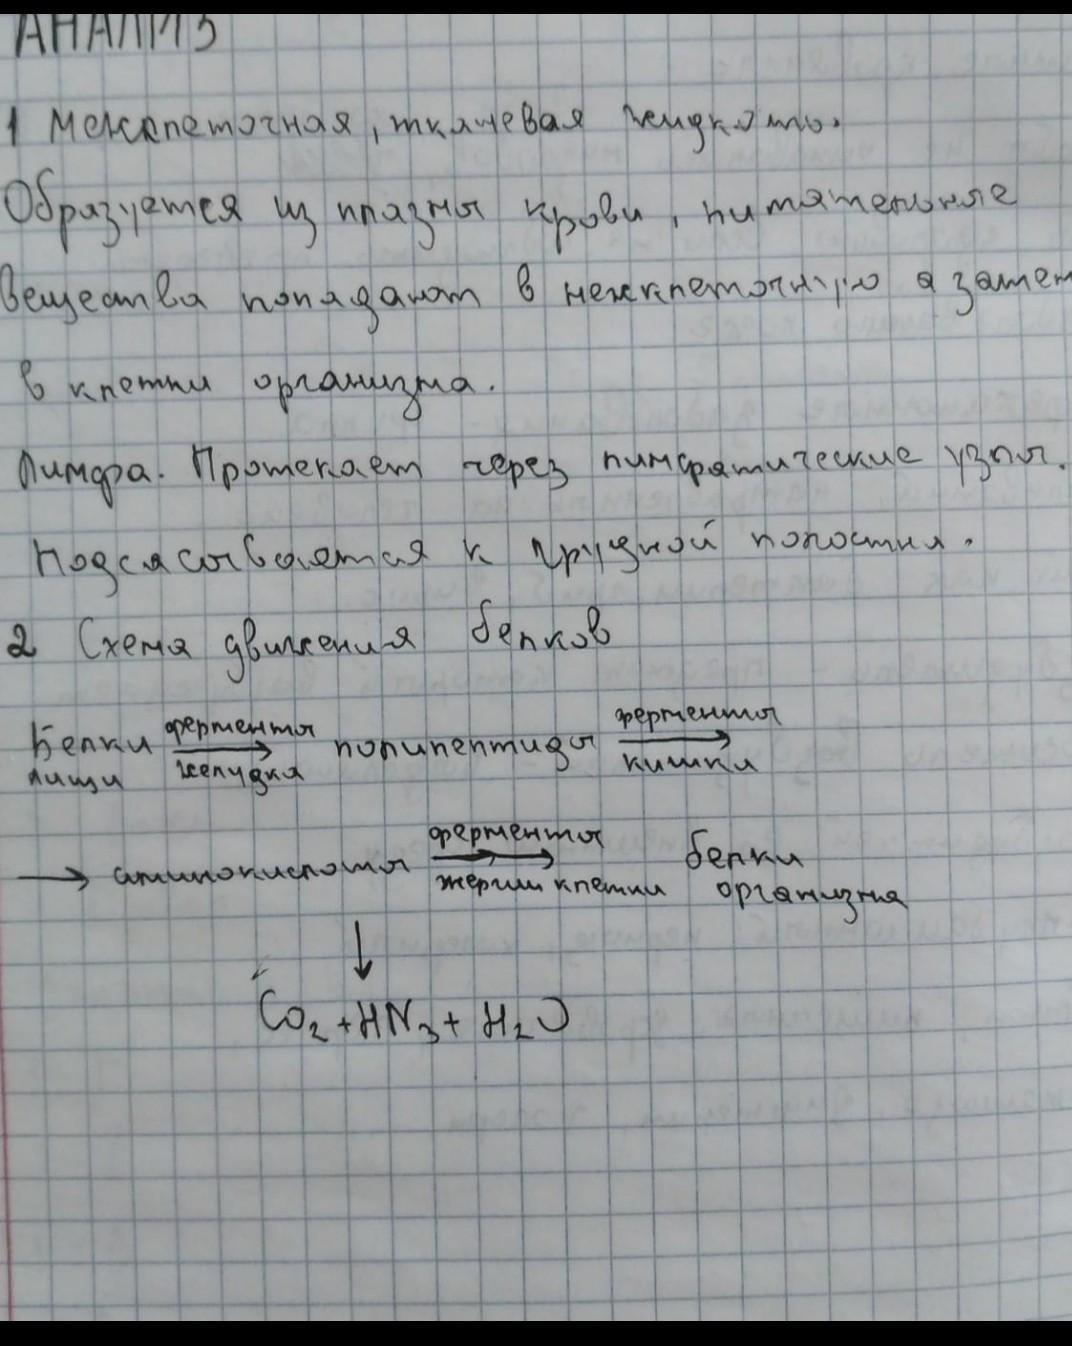 АНАЛИЗ
1 Межклеточная, тканевая жидкость.
Образуется из плазмы крови, питательные
вещества попадают в межклеточную а затем
в клетки организма.
Лимфа. Протекает через лимфатические узлы.
Подсасывается к грудной полости.
2 Схема движения белков
Белки пищи ферменты желудка → полипептиды ферменты кишки →
→ аминокислоты ферменты клетки → белки организма
↓
CO2 + HN3 + H2O